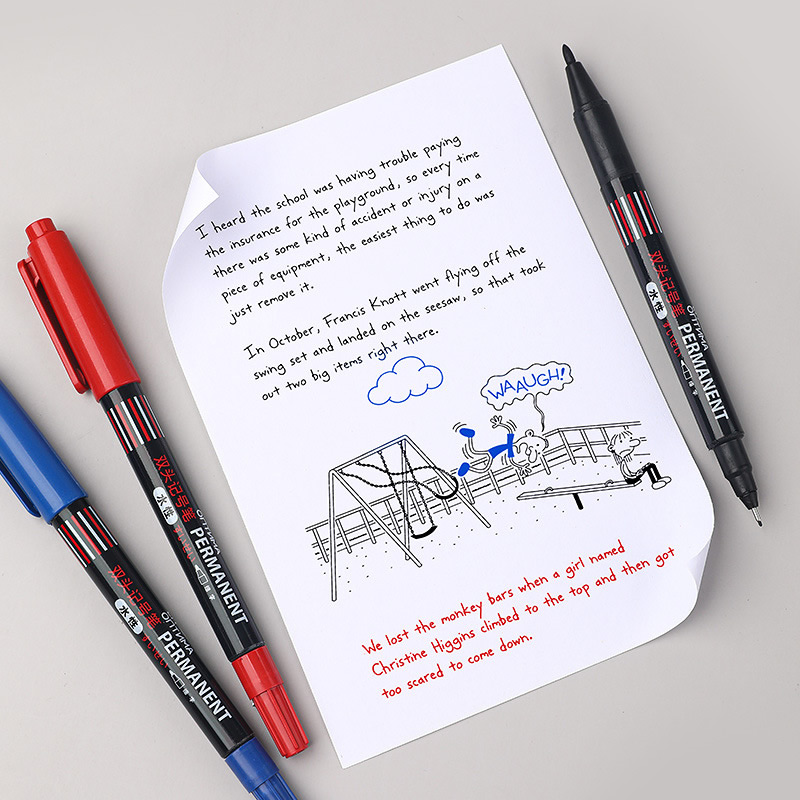 I heard the school was having trouble paying
the insurance for the playground, so every time
there was some kind of accident or injury on a
piece of equipment, the easiest thing to do was
just remove it.
In October, Francis Knott went flying off the
swing set and landed on the seesaw, so that took
out two big items right there.
WAAUGH!
We lost the monkey bars when a girl named
Christine Higgins climbed to the top and then got
too scared to come down.
双头记号笔
水性
ОПТИМА
PERMANENT
双头记号笔
水性
ОПТИМА
PERMANENT
双头记号笔
水性
ОПТИМА
PERMANENT